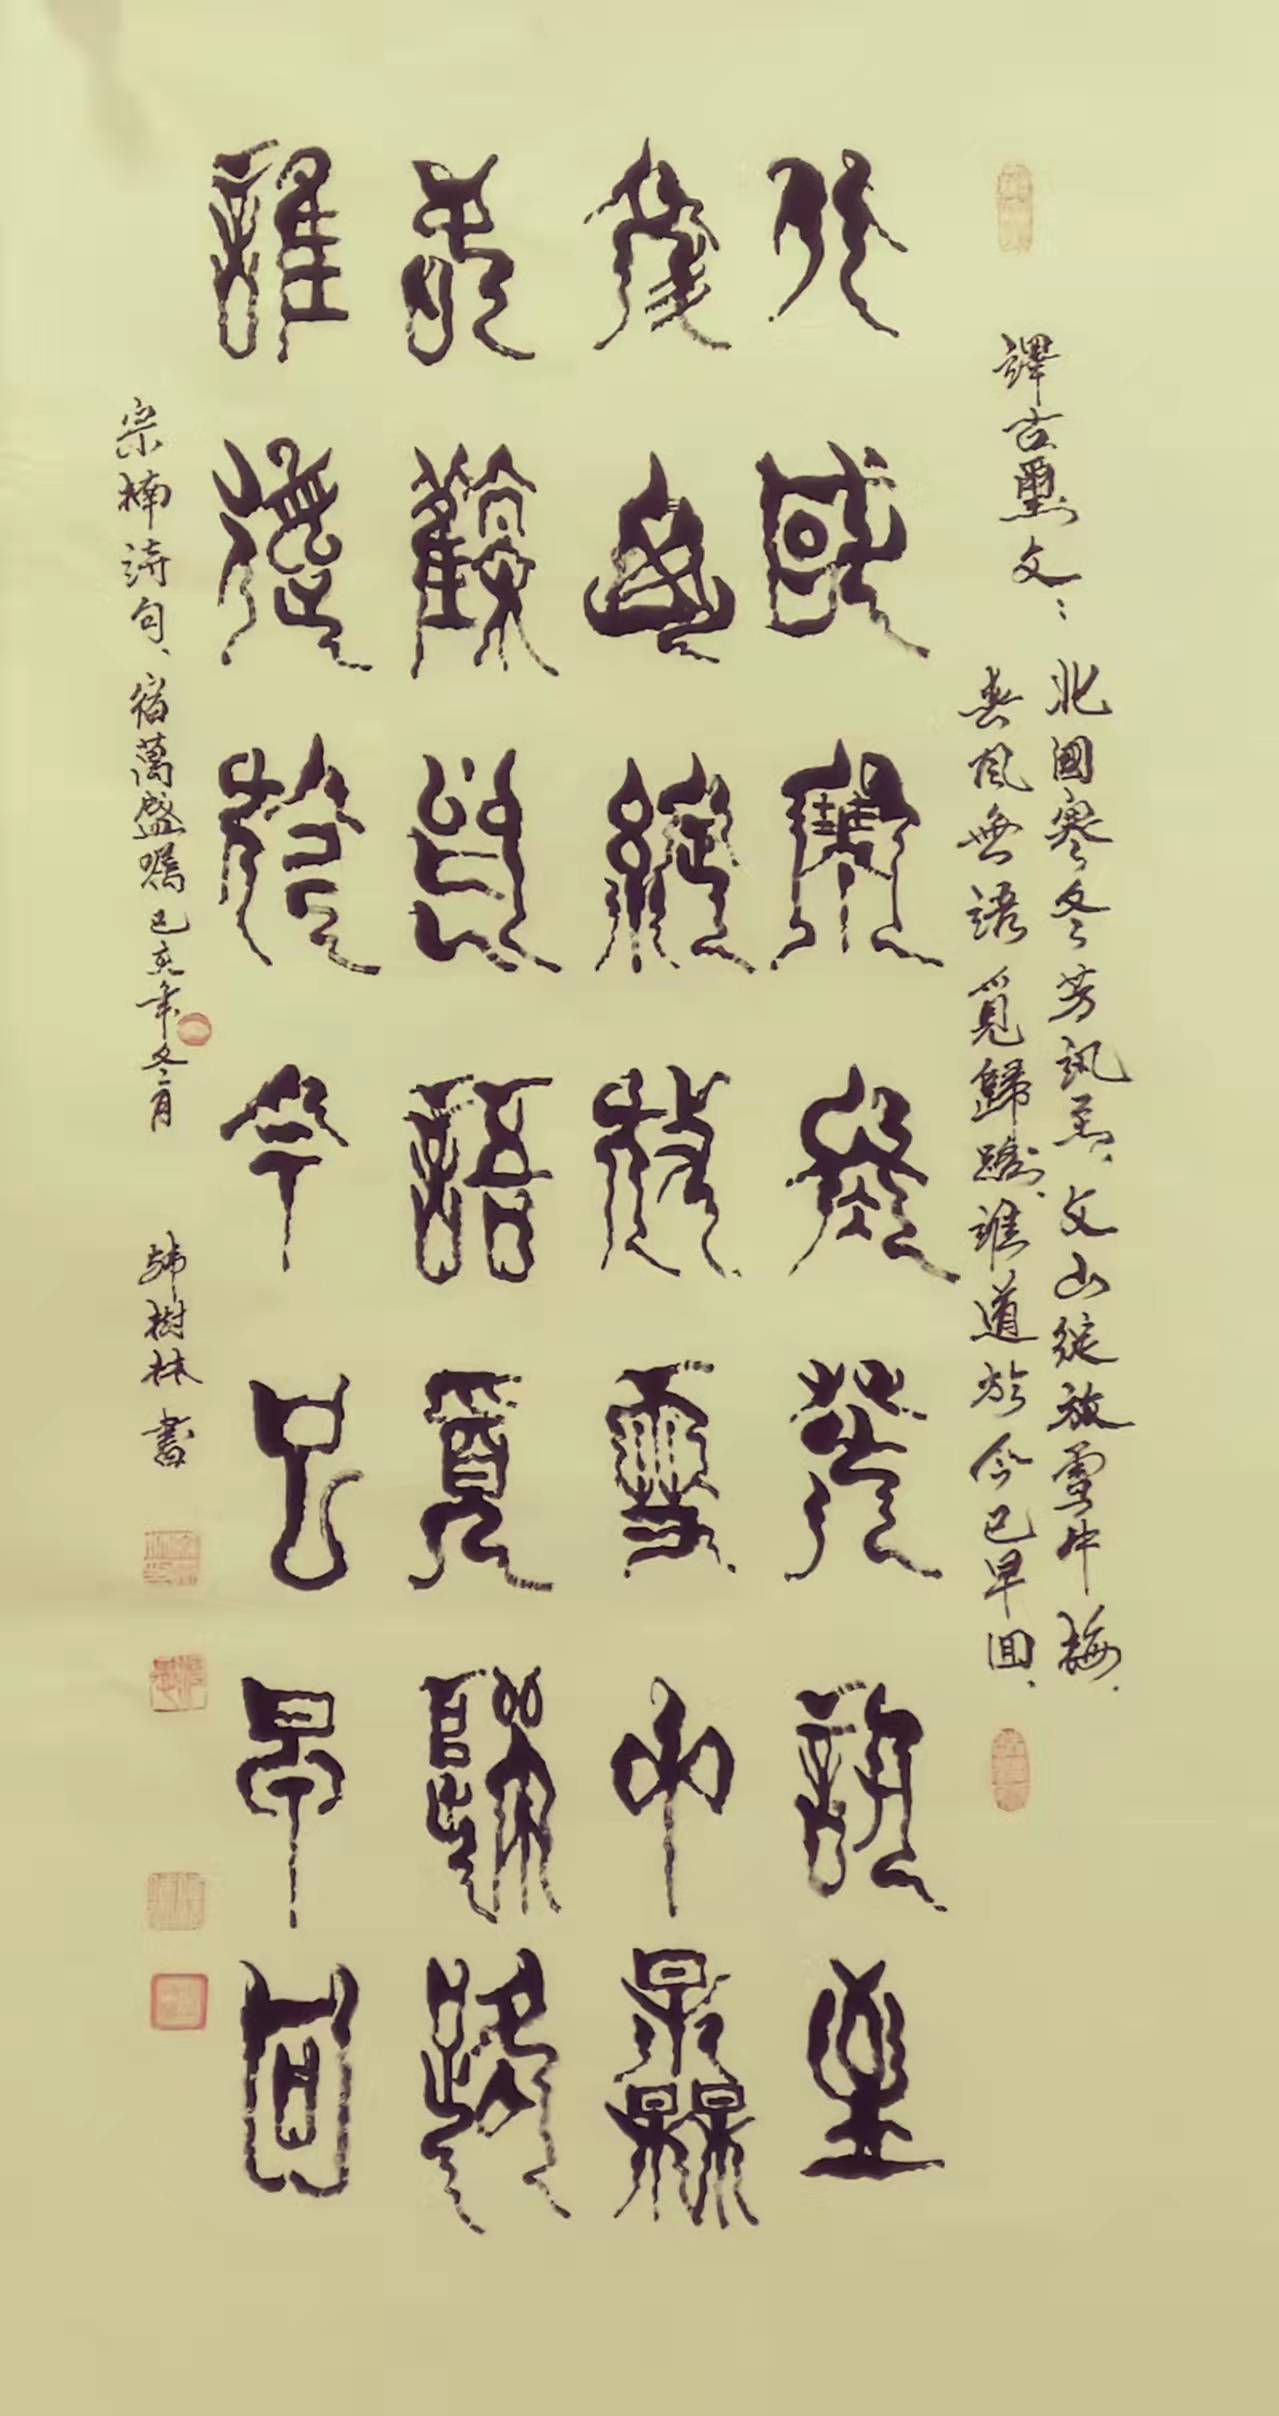 譯古璽文：
北國寒冬芳訊至、文山綻放雪中梅、
春風無語覓歸蹤、誰道於今已早回、
北國寒冬芳訊至
文山綻放雪中梅
春風無語覓歸蹤
誰道於今已早回
宗楠詩句、宿萬盛囑己亥年冬月
樹林書